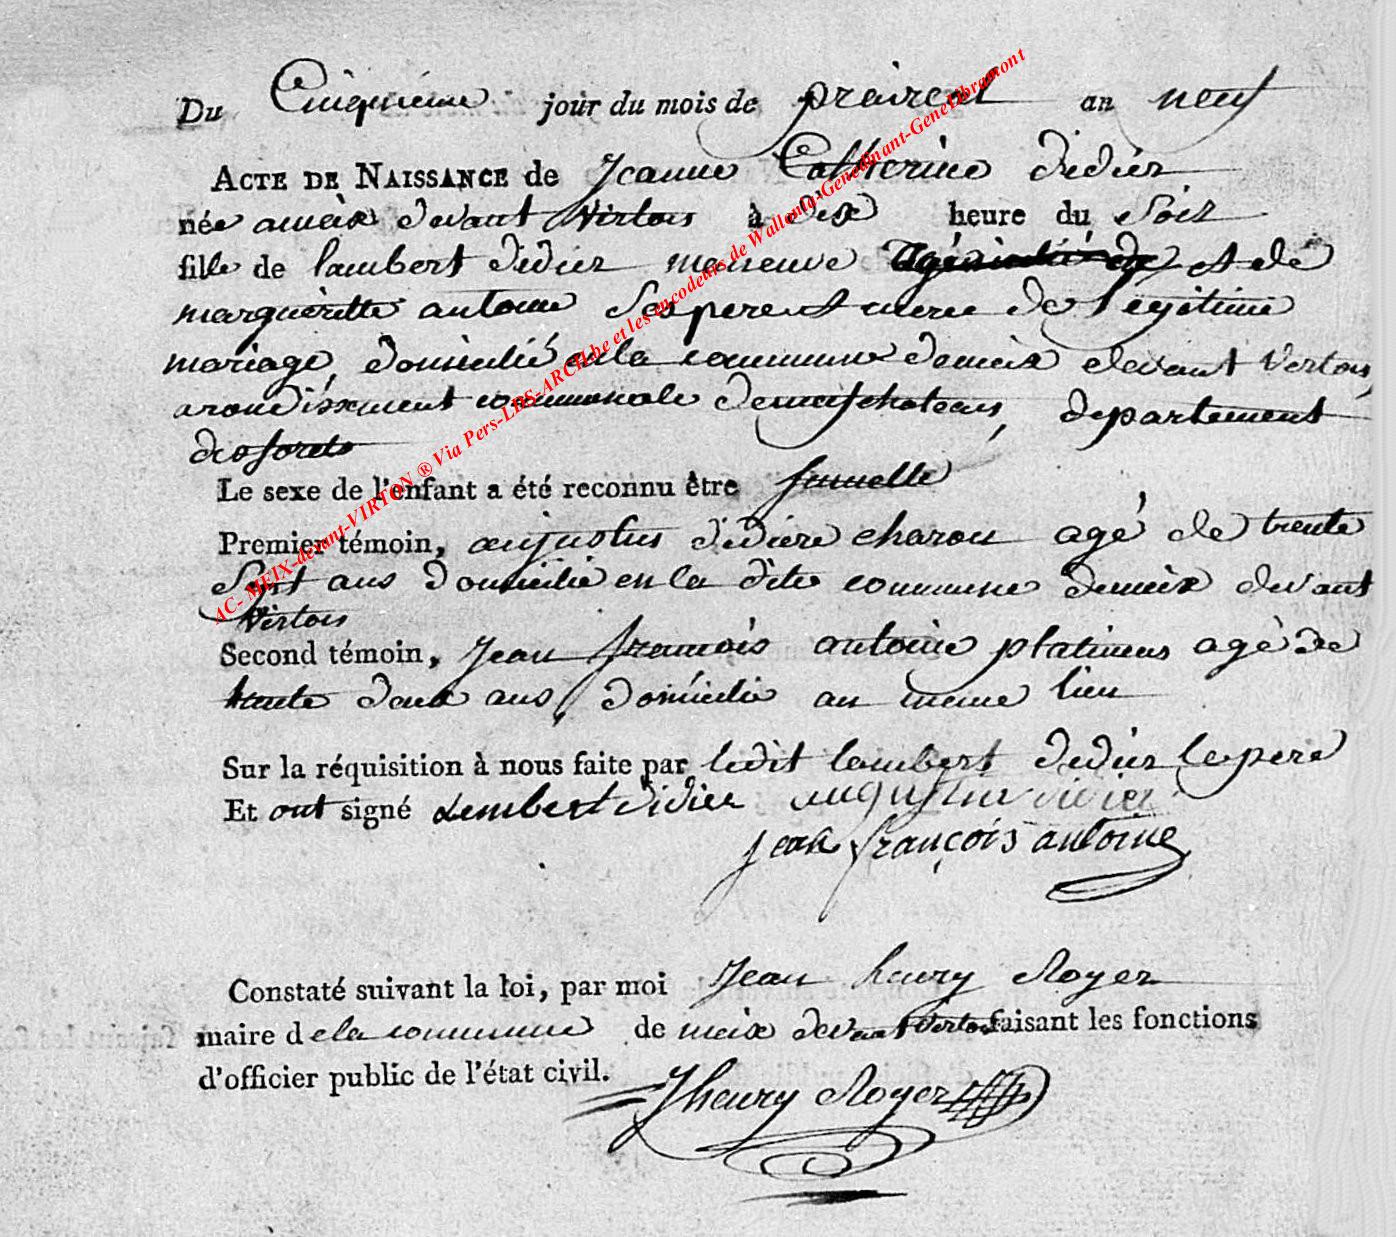 Du Cinquieme jour du mois de prairéal an neuf
ACTE DE NAISSANCE de Jeanne Catherine didier
née a meix devant Virton à dix heure du Soir
fille de lambert didier maneuve et de
margueritte antoine Ses pere et mere de légitime
mariage, domicilié en la commune demeix devant Verton,
arondissement communale deneufchateau, departement
des forets
Le sexe de l'enfant a été reconnu être femelle
Premier témoin, didiere charon agé de trente
Sept ans domicilié en la dite commune demeix devant
Virton
Second témoin, Jean francois antoine agé de
trente deux ans, domicilié au meme lieu
Sur la réquisition à nous faite par ledit lambert didier le pere
Et ont signé Lembert didier augustin didier
jean françois antoine
Constaté suivant la loi, par moi Jean henry Royer
maire dela commune de meix devant Verton faisant les fonctions
d'officier public de l'état civil.
Jhenry Royer
AC- MEIX-devant-VIRTON ® Via Pers-LDS-ARCH.be et les encodeurs de Wallonia-Genedinant-GeneLibramont